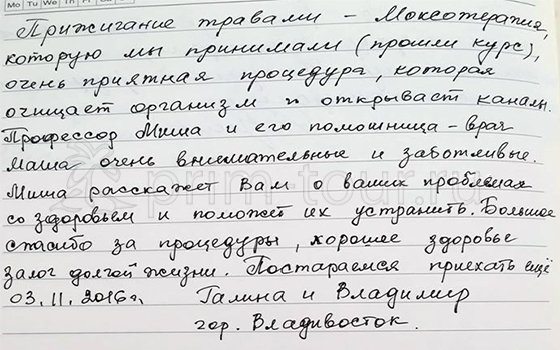 Mo Tu We Th Fr
Прижигание травами – Моксотерапия,
которую мы принимали (прошли курс),
очень приятная процедура, которая
очищает организм и открывает каналы.
Профессор Миша и его помошница – врач
Маша очень внимательные и заботливые.
Миша расскажет Вам о ваших проблемах
со здоровьем и поможет их устранить. Большое
спасибо за процедуры, хорошее здоровье
залог долгой жизни. Постараемся приехать ещё
03.11.2016г. Галина и Владимир
гор. Владивосток.
prim-tour.ru